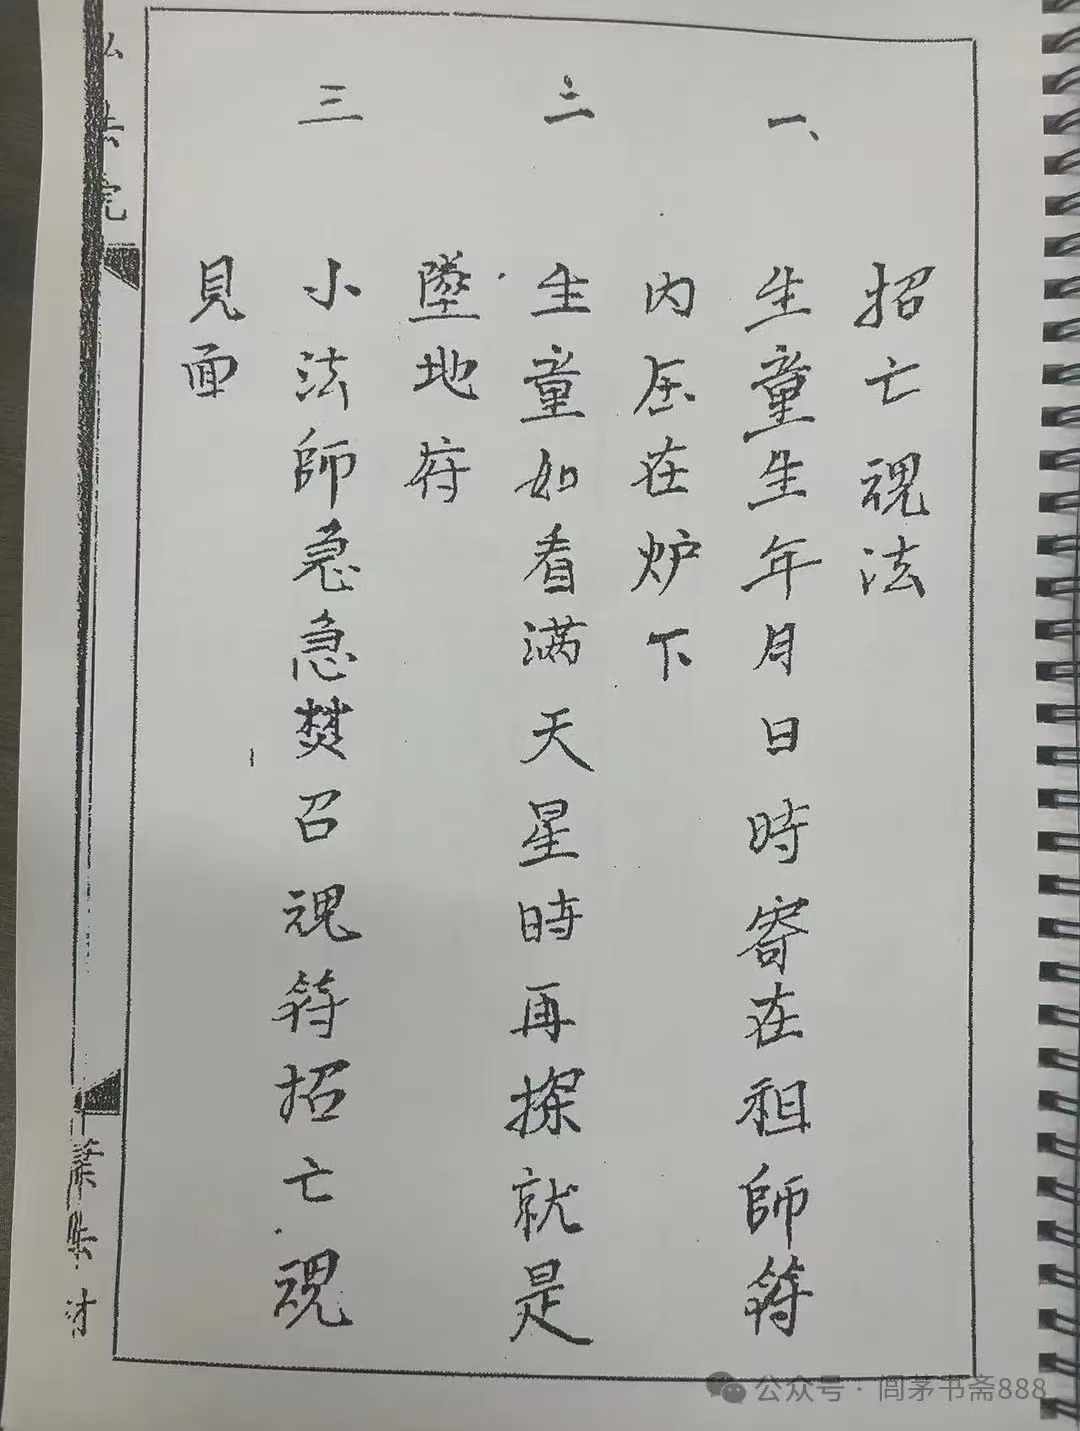 招亡魂法
一、生童生年月日時寄在祖師符
内压在炉下
二生童如看满天星時再探就是
墜地府
三小法師急急焚召魂符招亡魂
見面
弘法院
葉法財
公众号·闾茅书斋888